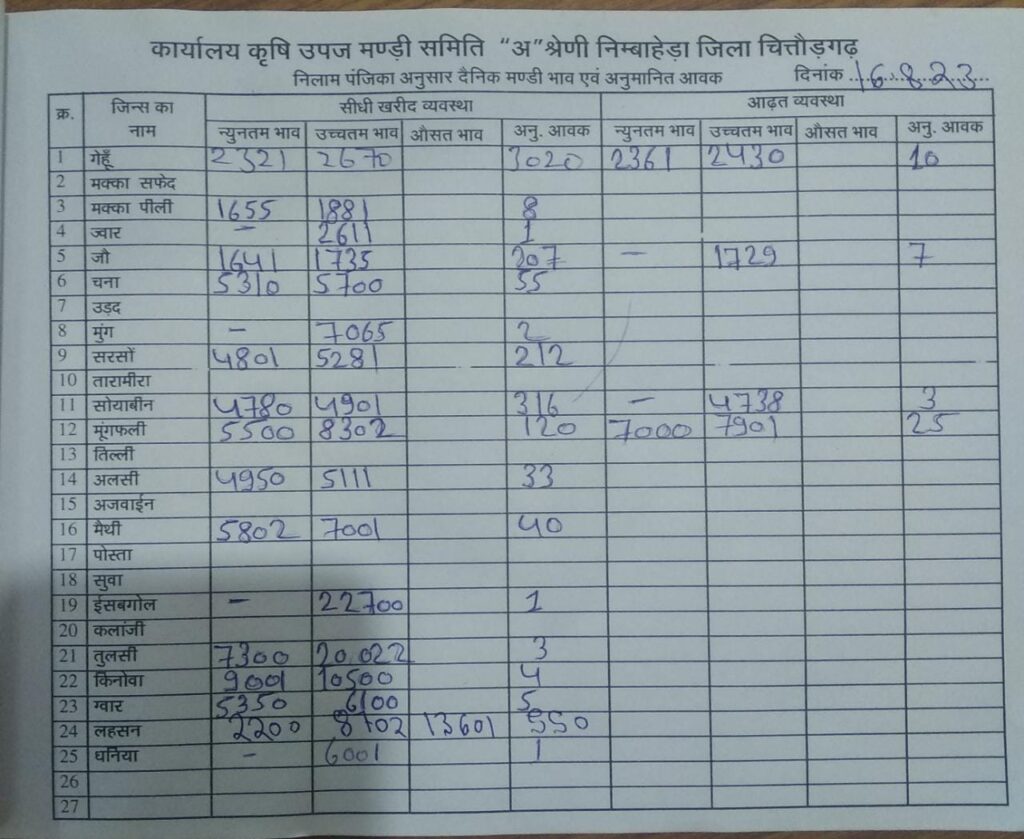 कार्यालय कृषि उपज मण्डी समिति "अ"श्रेणी निम्बाहेड़ा जिला चित्तौड़गढ़
निलाम पंजिका अनुसार दैनिक मण्डी भाव एवं अनुमानित आवक दिनांक 16.8.23
क्र. जिन्स का नाम सीधी खरीद व्यवस्था आढ़त व्यवस्था
न्युनतम भाव उच्चतम भाव औसत भाव अनु. आवक न्युनतम भाव उच्चतम भाव औसत भाव अनु. आवक
1 गेहूँ 2321 2670 3020 2361 2430 10
2 मक्का सफेद
3 मक्का पीली 1655 1881 8
4 ज्वार – 2611 1
5 जौ 1641 1735 207 – 1729 7
6 चना 5310 5700 55
7 उड़द
8 मुंग – 7065 2
9 सरसों 4801 5281 212
10 तारामीरा
11 सोयाबीन 4780 4901 316 – 4738 3
12 मूंगफली 5500 8302 120 7000 7901 25
13 तिल्ली
14 अलसी 4950 5111 33
15 अजवाईन
16 मैथी 5802 7001 40
17 पोस्ता
18 सुवा
19 ईसबगोल – 22700 1
20 कलांजी
21 तुलसी 7300 20,022 3
22 किनोवा 9001 10500 4
23 ग्वार 5350 6100 5
24 लहसन 2200 8702 13601 550
25 धनिया – 6001 1
26
27